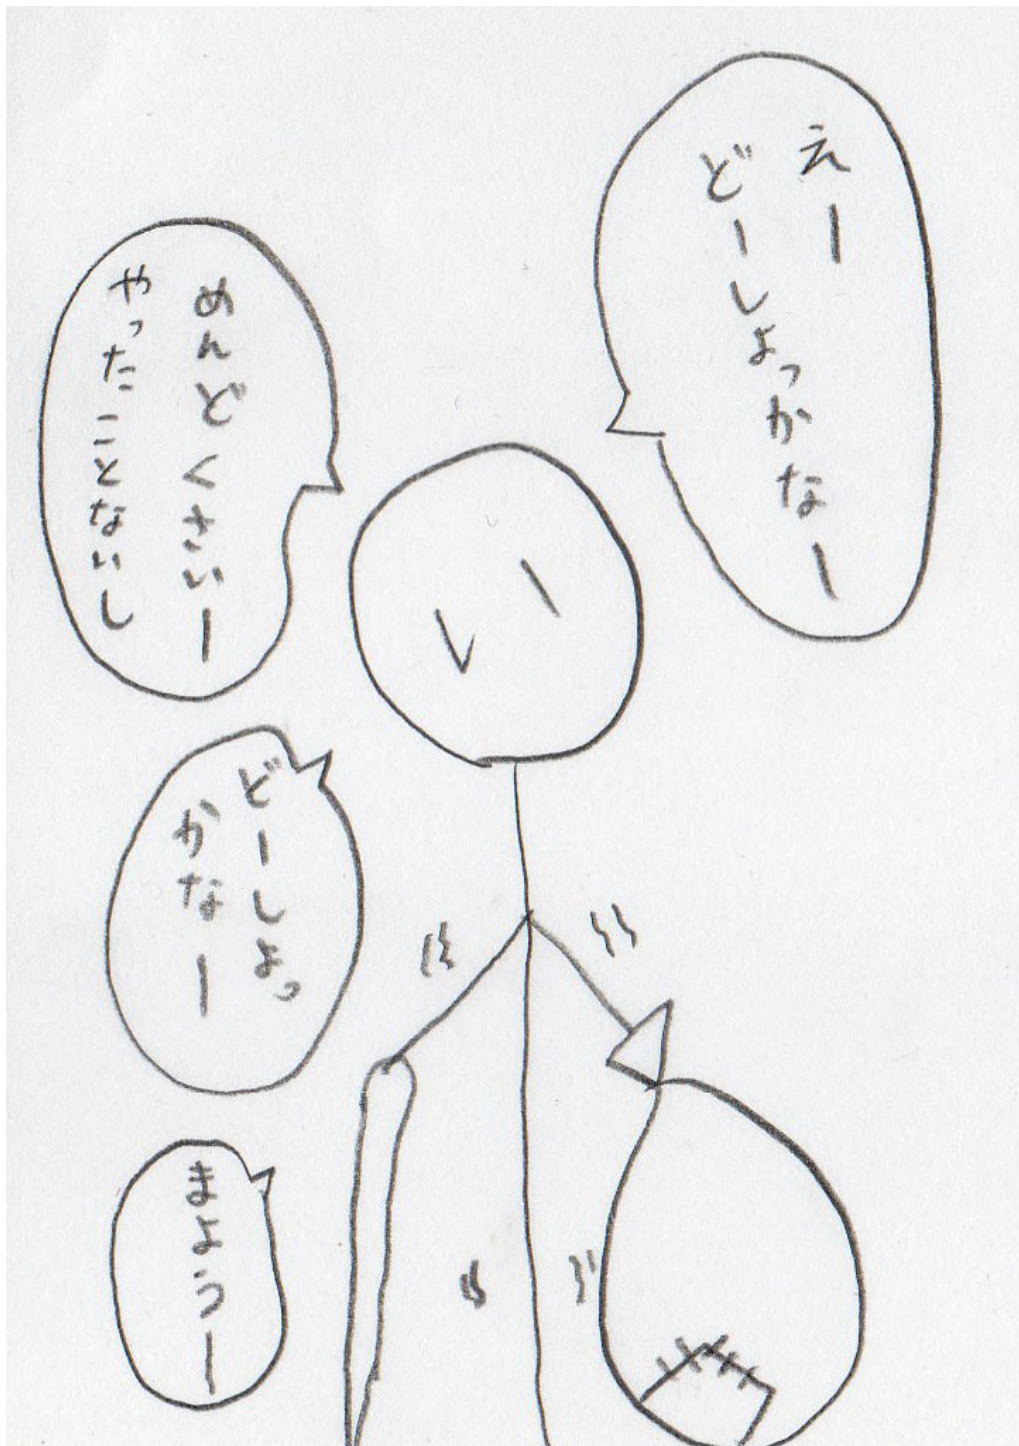 えー
どーしょっかなー
めんどくさいー
やったことないし
どーしょっ
かなー
まようー